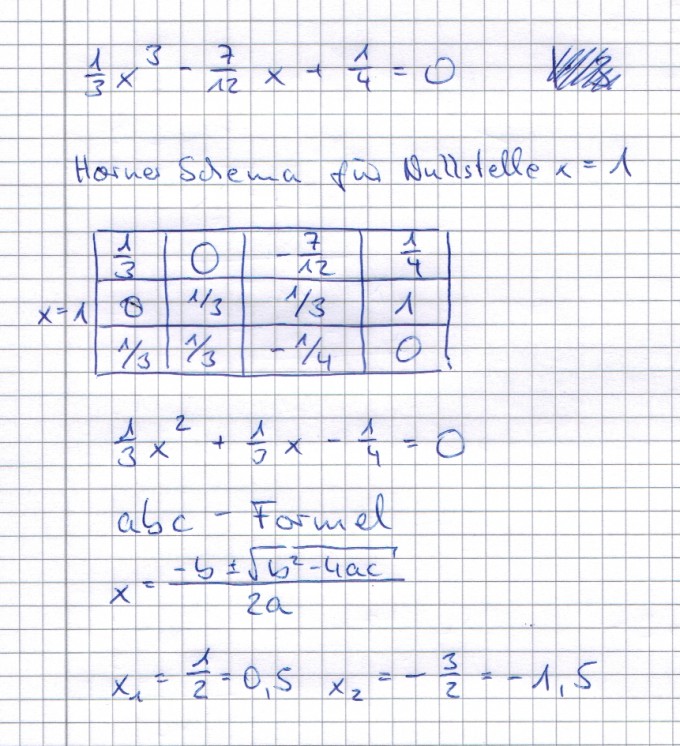 1/3 x³ - 7/12 x + 1/4 = 0
Horner Schema für Nullstelle x = 1
1/3 0 -7/12 1/4
x=1 0 1/3 1/3 1
1/3 1/3 -1/4 0
1/3 x² + 1/3 x - 1/4 = 0
abc - Formel
x = (-b ± √(b²-4ac)) / 2a
x₁ = 1/2 = 0,5 x₂ = -3/2 = -1,5